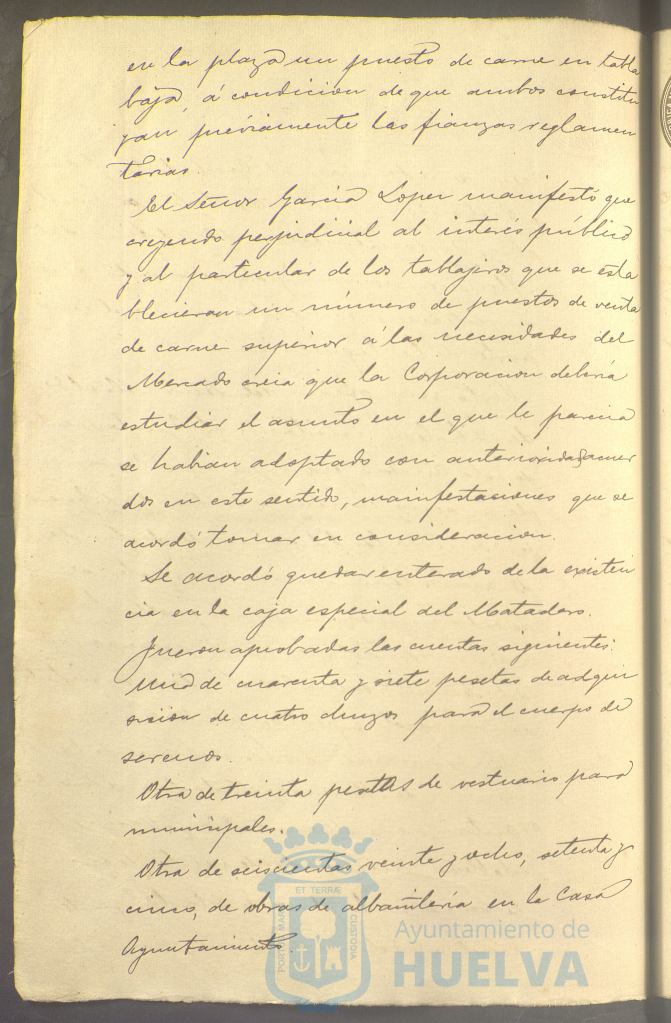 en la plaza un puesto de carne en tabla
baja, á condicion de que ambos constitu
yan préviamente las fianzas reglamen
tarias.
El Señor Garcia Lopez manifestó que
creyendo perjudicial al interés público
y al particular de los tablajeros que se esta
blecieran un número de puestos de venta
de carne superior á las necesidades del
Mercado creia que la Corporacion deberia
estudiar el asunto en el que le parecia
se habian adoptado con anterioridad acuer
dos en este sentido, manifestaciones que se
acordó tomar en consideracion.
Se acordó quedar enterado de la existen
cia en la caja especial del Matadero.
Fueron aprobadas las cuentas siguientes:
Una de cuarenta y siete pesetas de adqui
sicion de cuatro chuzos para el cuerpo de
serenos.
Otra de treinta pesetas de vestuario para
municipales.
Otra de seiscientas veinte y ocho, setenta y
cinco, de obras de albañileria en la Casa
Ayuntamiento
PORTUS MARIS ET TERRÆ CUSTODIA
Ayuntamiento de
HUELVA